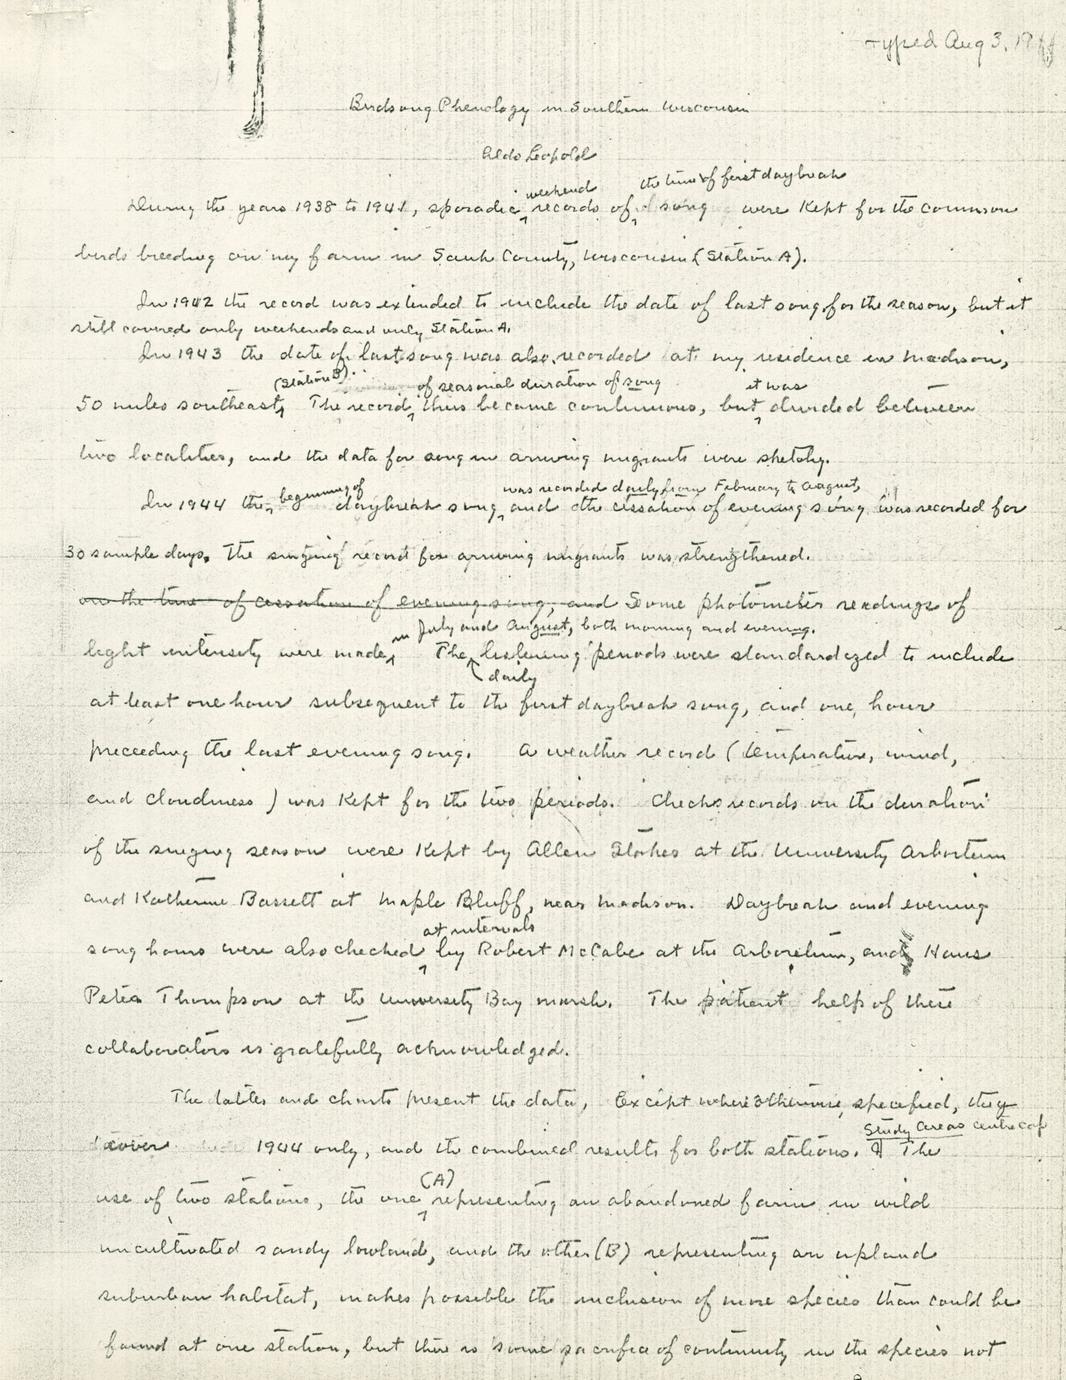 Typed Aug 3, 19
Birdsong Phenology in Southern Wisconsin
Aldo Leopold
weekend the time of first daybreak
During the years 1938 to 1941, sporadic records of song were kept for the common
birds breeding on my farm in Sauk County, Wisconsin (Station A).
In 1942 the record was extended to include the date of last song for the season, but it
still covered only weekends and only Station A.
In 1943 the date of last song was also recorded at my residence in Madison,
(Station B). of seasonal duration of song it was
50 miles southeast, The record thus became continuous, but divided between
two localities, and the data for song in arriving migrants were sketchy.
beginning of was recorded daily from February to August,
In 1944 the daybreak song and the cessation of evening song was recorded for
30 sample days. The singing record for arriving migrants was strengthened.
on the time of cessation of evening song, and Some photometer readings of
in July and August, both morning and evening.
light intensity were made The listening periods were standardized to include
daily
at least one hour subsequent to the first daybreak song, and one hour
preceeding the last evening song. A weather record (temperature, wind,
and cloudiness) was kept for the two periods. Check records on the duration
of the singing season were kept by Allen Stokes at the University Arboretum
and Katherine Bassett at Maple Bluff, near Madison. Daybreak and evening
at intervals
song hours were also checked by Robert McCabe at the Arboretum, and Hans
Peter Thompson at the University Bay marsh. The patient help of these
collaborators is gratefully acknowledged.
The tables and charts present the data, Except where otherwise specified, they
Study Areas centre cap
cover 1944 only, and the combined results for both stations. ¶ The
(A)
use of two stations, the one representing an abandoned farm in wild
uncultivated sandy lowland, and the other (B) representing an upland
suburban habitat, makes possible the inclusion of more species than could be
found at one station, but there is some sacrifice of continuity in the species not